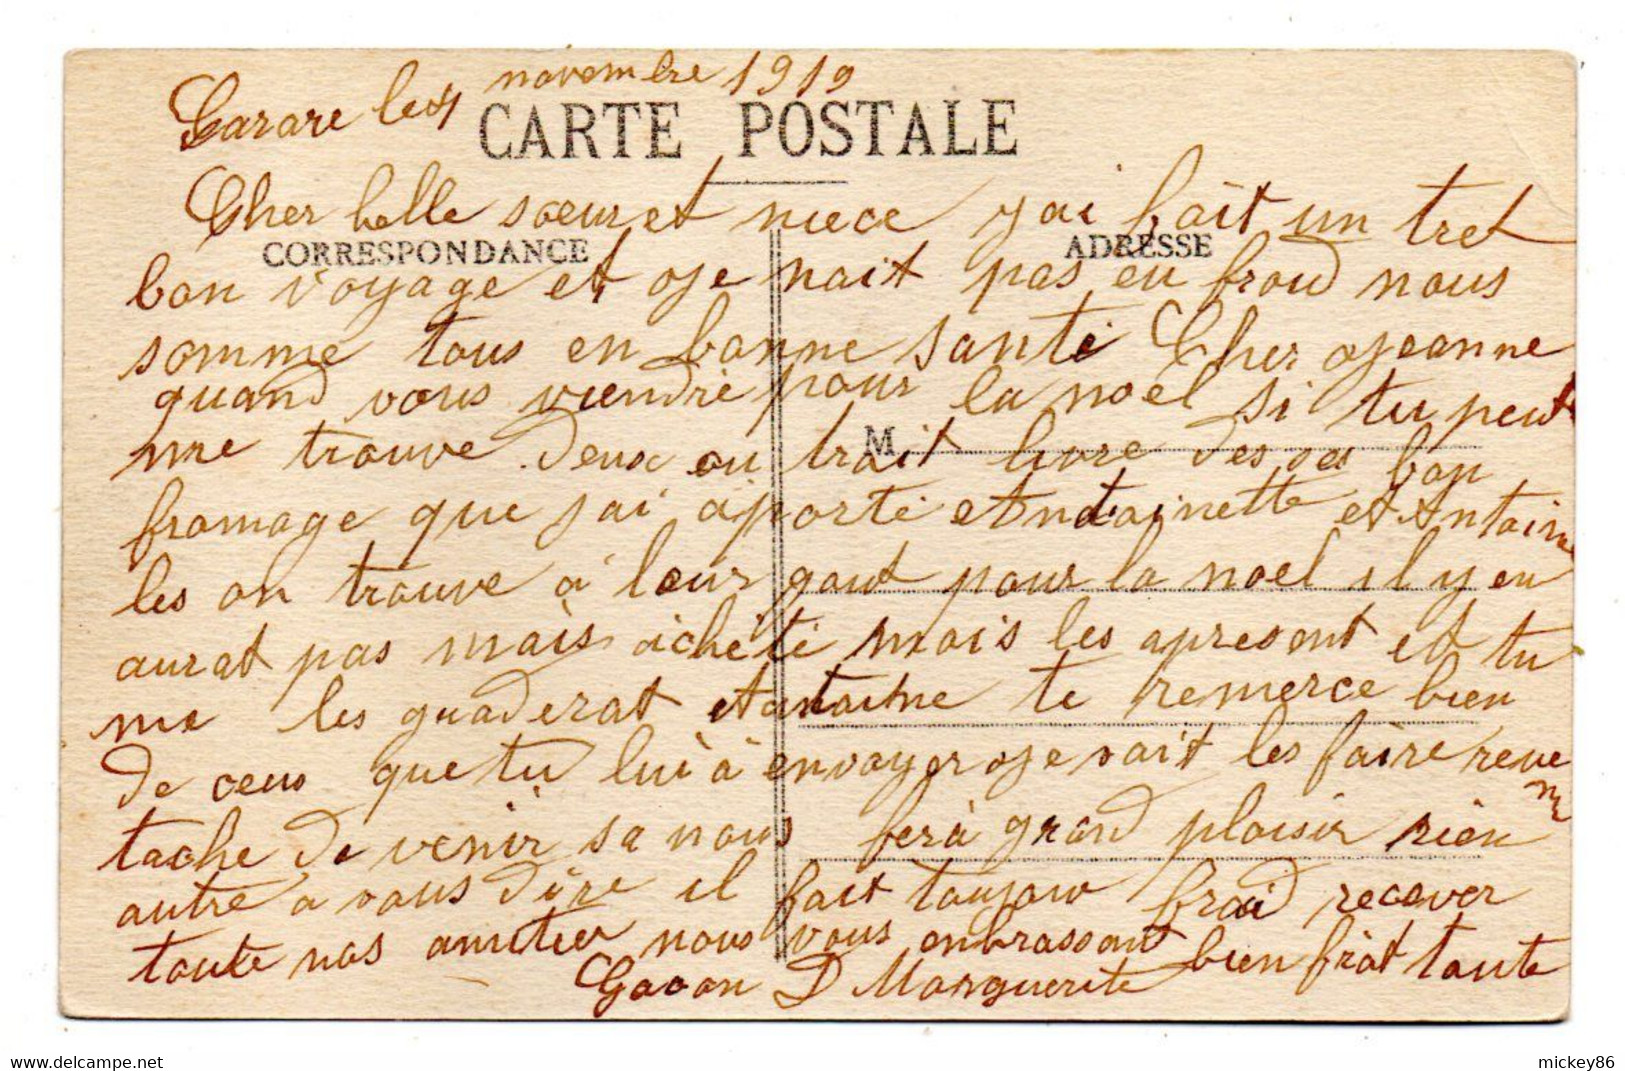 Tarare le 4 novembre 1919
CARTE POSTALE
Cher belle soeur et niece j ai fait un tret
CORRESPONDANCE
ADRESSE
bon voyage et je nait pas eu froid nous
somme tous en bonne santé Cher jeanne
quand vous viendré pour la noel si tu peut
M
me trouve deux ou trait livre des bon
fromage que jai aporté et toinette et Antoine
les on trouve à leur gout pour la noel il y en
aurat pas mais achété mois les apresent et tu
me les guaderat et antoine te remerce bien
de ceus que tu lui à envoyer je vait les faire reveni
tache de venir sa nous ferà grand plaisir rien
autre a vous dire il fait toujour froid recever
toute nos amitier nous vous enbrassont bien frat tante
Marguerite
mickey86